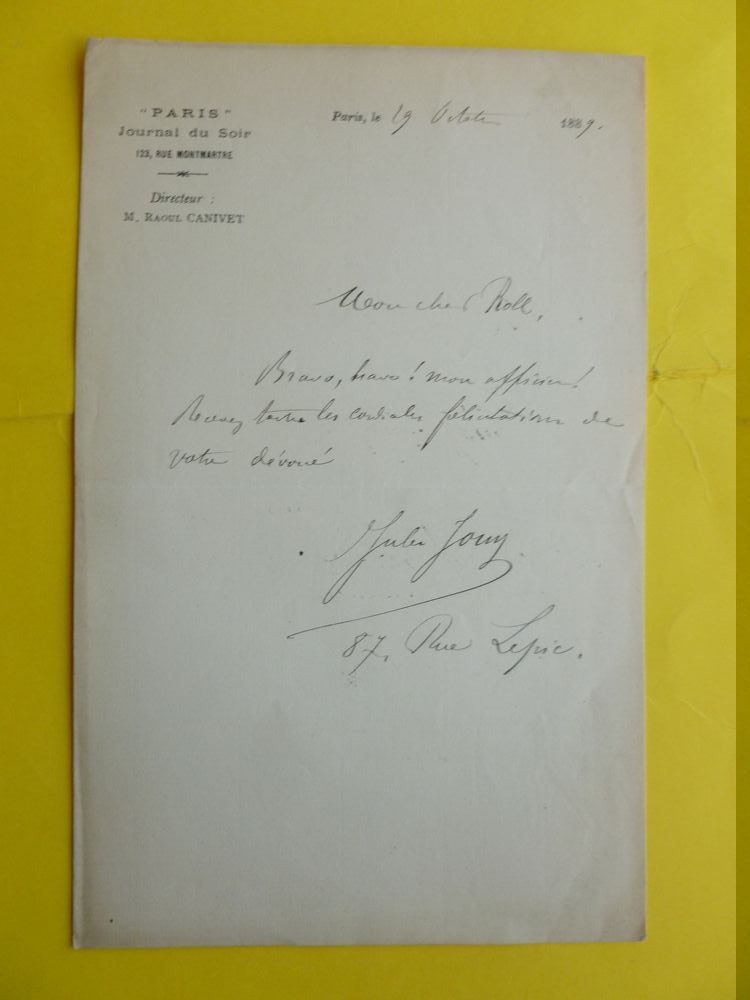 "PARIS"
Journal du Soir
123, RUE MONTMARTRE
Directeur :
M. RAOUL CANIVET
Paris, le 29 Octobre 1889.
Mon cher Roll,
Bravo, bravo! mon officier!
Recevez toutes les cordiales félicitations de
votre dévoué
Jules Jouy
87, Rue Lepic.